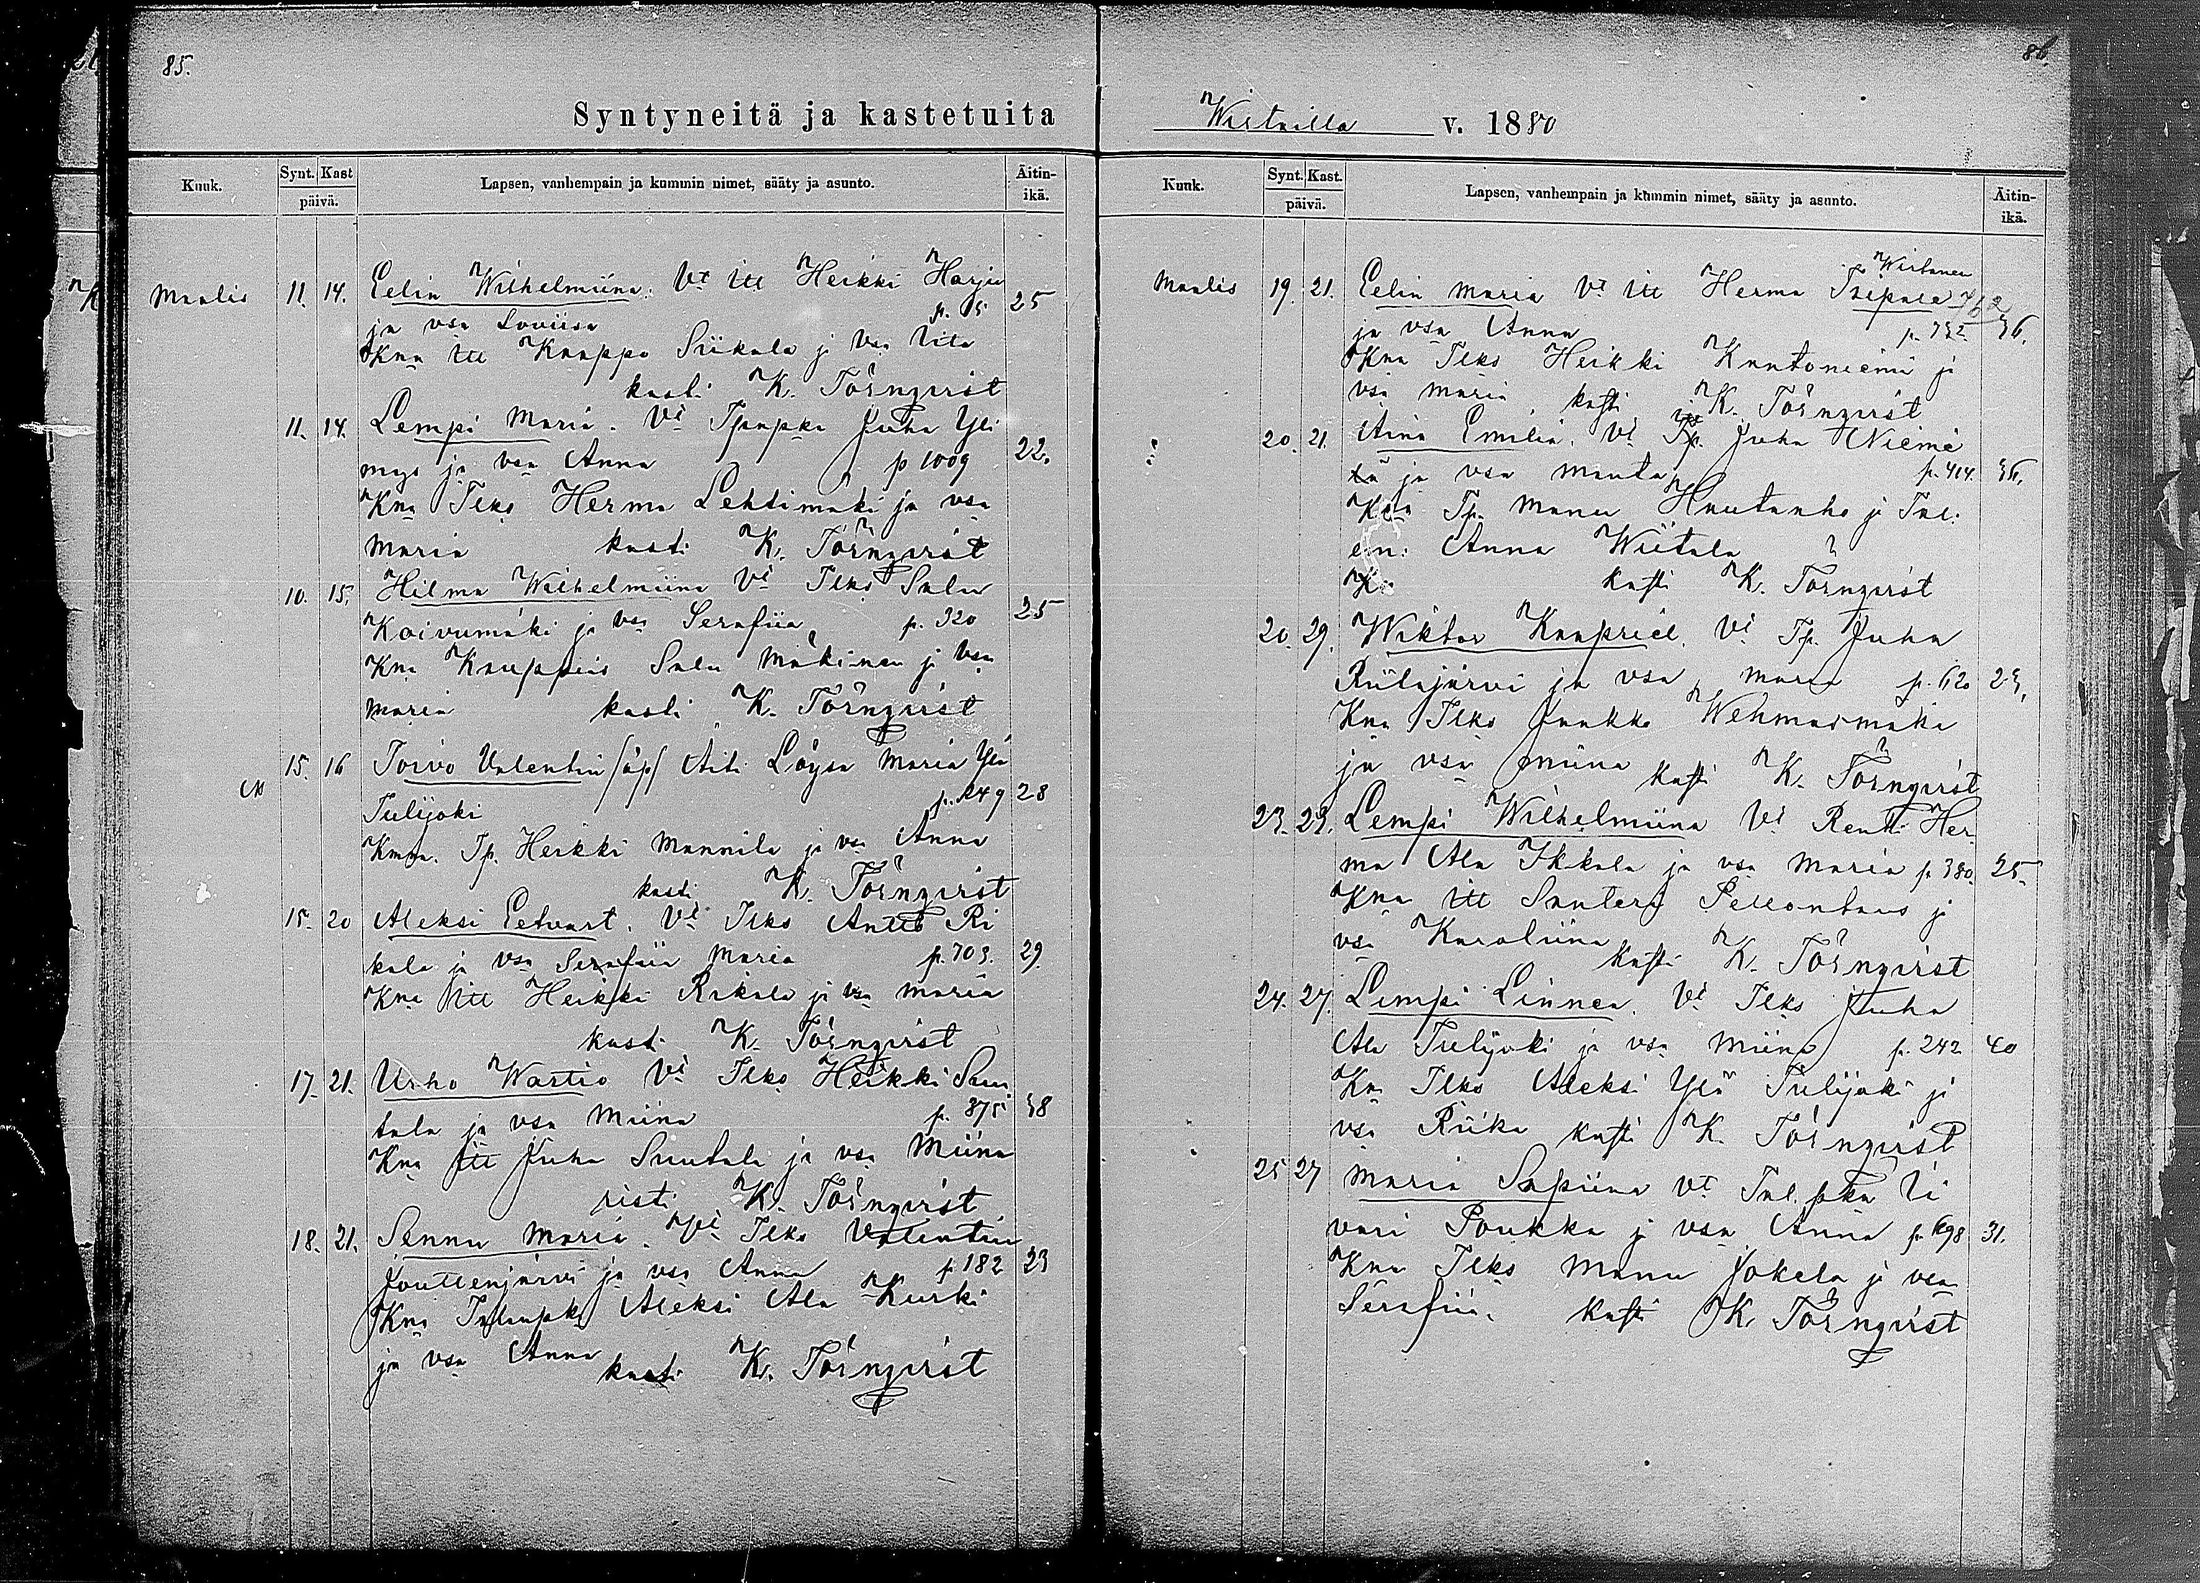 85.
Syntyneitä ja kastetuita
Kuuk.
Synt. Kast
päivä.
Lapsen, vanhempain ja kummin nimet, sääty ja asunto.
Äitin-
ikä.
Maalis 11. 14. Eelin Wilhelmiina. Vt Itt Heikki Harju
ja vsa Loviisa p. 15 25
Kna Itt Kaappo Siikala j vsa
kasti K. Törnqvist
11. 14. Lempi Maria. Vt Juha Yli
ja vsa Anna p 1009 22.
Kna Tlks Herma Lehtimäki ja vsa
Maria kasti K. Törnqvist
10. 15. Hilma Wilhelmiina Vt Tlks Salu
Koivumäki ja vsa Serafiia p. 320 25
Kna Salu Mäkinen j vsa
Maria kasti K. Törnqvist
15. 16 Toivo Valentin /äp/ Äiti Löysa Maria Ylä
Tulijoki 28
Tp. Heikki Mannila ja vsa Anna
kasti K. Törnqvist
15. 20 Aleksi Eetvart. Vt Tlks Antti Ri
kala ja vsa Serafiia Maria p. 703. 29.
Kna Itt Heikki Rikala ja vsa Maria
kasti K. Törnqvist
17. 21. Urho Wartio Vt Tlks Heikki Suu
tala ja vsa Miina p. 875 38
Kna Itt Juha Suutala ja vsa Miina
risti K. Törnqvist
18. 21. Sennu Maria. Vt Tlks Valentin
Jouttenjärvi ja vsa Anna p. 182 23
Kna Aleksi Ala Kurki
ja vsa Anna kasti K. Törnqvist
86.
v. 1880
Kuuk.
Synt. Kast.
päivä.
Lapsen, vanhempain ja kummin nimet, sääty ja asunto.
Äitin-
ikä.
Wirtanen
Maalis 19. 21. Eelin Maria Vt Itt Herma 762
ja vsa Anna p. 732 36.
Kna Tlks Heikki Kantoniemi ja
vsa Maria kasti K. Törnqvist
20. 21. Aina Emilia. Vt Tp. Juha Niemi
tä ja vsa Manta p. 414. 36.
Kna Tp. Manu Hautanho j Tal.
em: Anna Wiitala
K. kasti K. Törnqvist
20. 29. Wiktor Kaapriel. Vt Tp. Juha
Riilajärvi ja vsa Maria p. 620 23.
Kna Tlks Jaakko Wehmasmäki
ja vsa Miina kasti K. Törnqvist
23. 23. Lempi Wilhelmiina Vt Rentt: Her
ma Ala Ikkala ja vsa Maria p. 380. 25.
Kna Itt Santeri j
vsa Karoliina kasti K. Törnqvist
24. 27. Lempi Linnea. Vt Tlks Juha
Ala Tulijoki ja vsa Miina p. 242 40
Kn. Tlks Aleksi Ylä Tulijoki j
vsa Riika kasti K. Törnqvist
25 27 Maria Sapiina Vt Tal. pka Ii
vari Poukka j vsa Anna p. 698 31.
Kna Tlks Manu Jokela j vsa
Serafiia. kasti K. Törnqvist